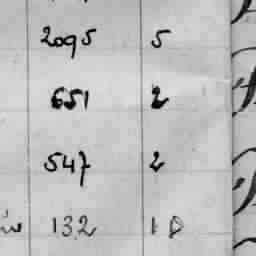 2095 5
651 2
547 2
132 1